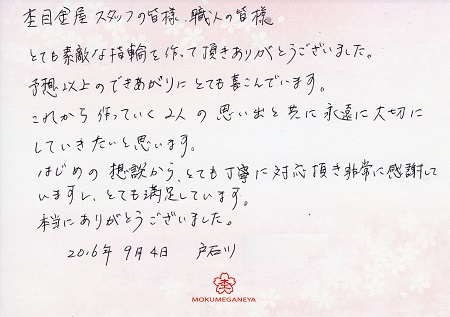 杢目金屋 スタッフの皆様、職人の皆様
とても素敵な指輪を作って頂きありがとうございました。
予想以上のできあがりにとても喜こんでいます。
これから作っていく2人の思い出と共に永遠に大切に
していきたいと思います。
はじめの想談から、とても丁寧に対応頂き非常に感謝して
いますし、とても満足しています。
本当にありがとうございました。
2016年9月4日 戸石川
MOKUMEGANEYA